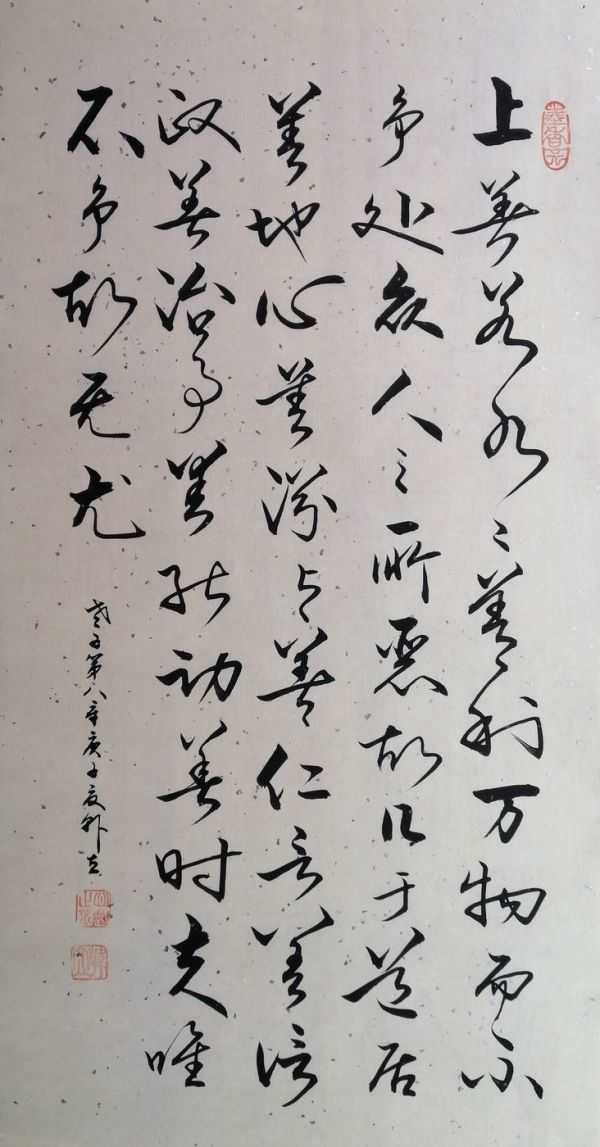 上善若水〻善利万物而不
争处众人之所恶故几于道居
善地心善渊与善仁言善信
政善治事善能动善时夫唯
不争故无尤
老子第八章庚子夏